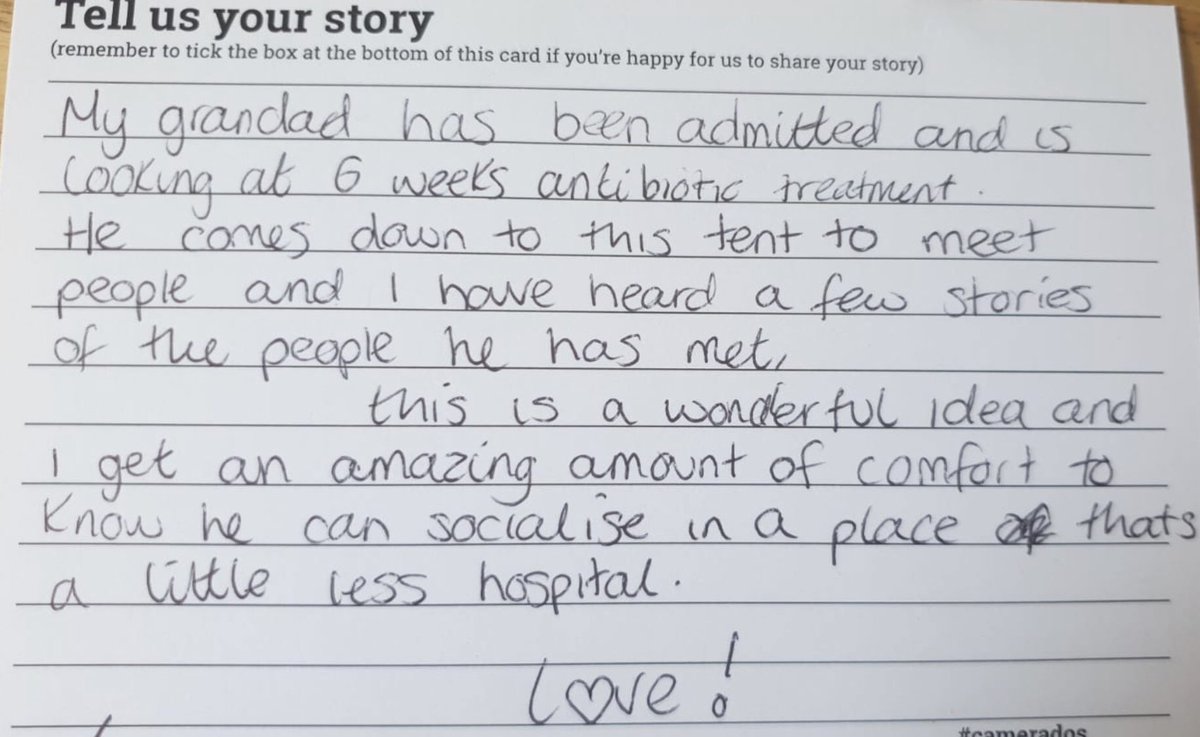 Tell us your story
(remember to tick the box at the bottom of this card if you're happy for us to share your story)
My grandad has been admitted and is
looking at 6 weeks antibiotic treatment.
He comes down to this tent to meet
people and I have heard a few stories
of the people he has met,
this is a wonderful idea and
I get an amazing amount of comfort to
know he can socialise in a place thats
a little less hospital.
Love!
#camerados